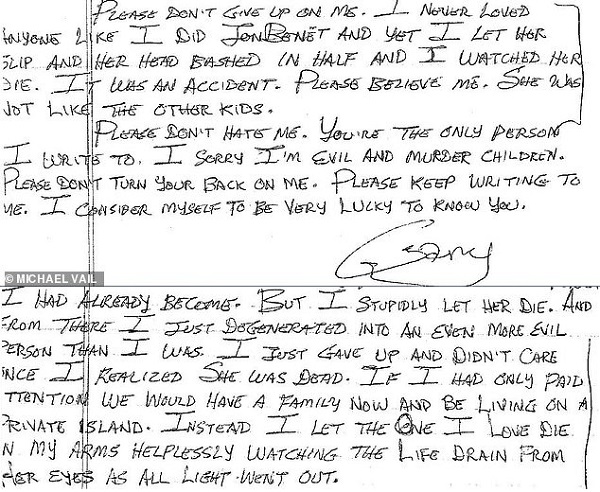 PLEASE DON'T GIVE UP ON ME. I NEVER LOVED
ANYONE LIKE I DID JONBENÉT AND YET I LET HER
SLIP AND HER HEAD BASHED IN HALF AND I WATCHED HER
DIE. IT WAS AN ACCIDENT. PLEASE BELIEVE ME. SHE WAS
NOT LIKE THE OTHER KIDS.
PLEASE DON'T HATE ME. YOU'RE THE ONLY PERSON
I WRITE TO. I SORRY I'M EVIL AND MURDER CHILDREN.
PLEASE DON'T TURN YOUR BACK ON ME. PLEASE KEEP WRITING TO
ME. I CONSIDER MYSELF TO BE VERY LUCKY TO KNOW YOU.
Gary
© MICHAEL VAIL
I HAD ALREADY BECOME. BUT I STUPIDLY LET HER DIE. AND
FROM THERE I JUST DEGENERATED INTO AN EVEN MORE EVIL
PERSON THAN I WAS. I JUST GAVE UP AND DIDN'T CARE
INCE I REALIZED SHE WAS DEAD. IF I HAD ONLY PAID
TTENTION WE WOULD HAVE A FAMILY NOW AND BE LIVING ON A
PRIVATE ISLAND. INSTEAD I LET THE ONE I LOVE DIE
N MY ARMS HELPLESSLY WATCHING THE LIFE DRAIN FROM
HER EYES AS ALL LIGHT WENT OUT.